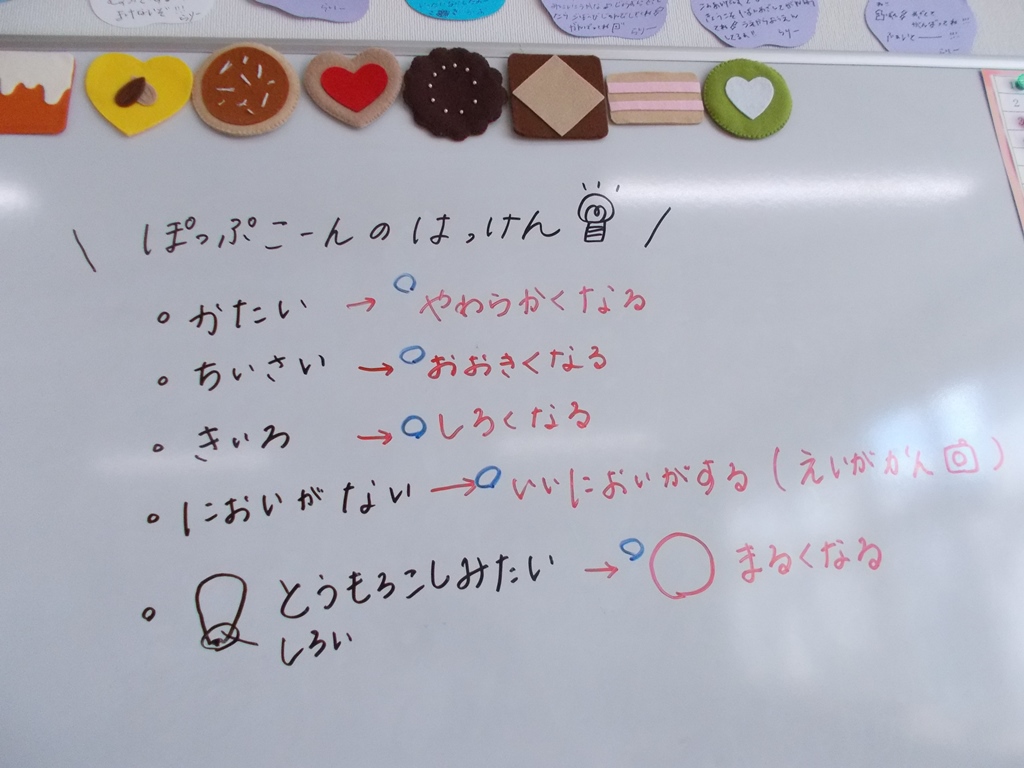 \ ぽっぷこーんのはっけん /
。かたい → やわらかくなる
。ちいさい → おおきくなる
。きいろ → しろくなる
。においがない → いいにおいがする(えいがかん)
。とうもろこしみたい → まるくなる
しろい